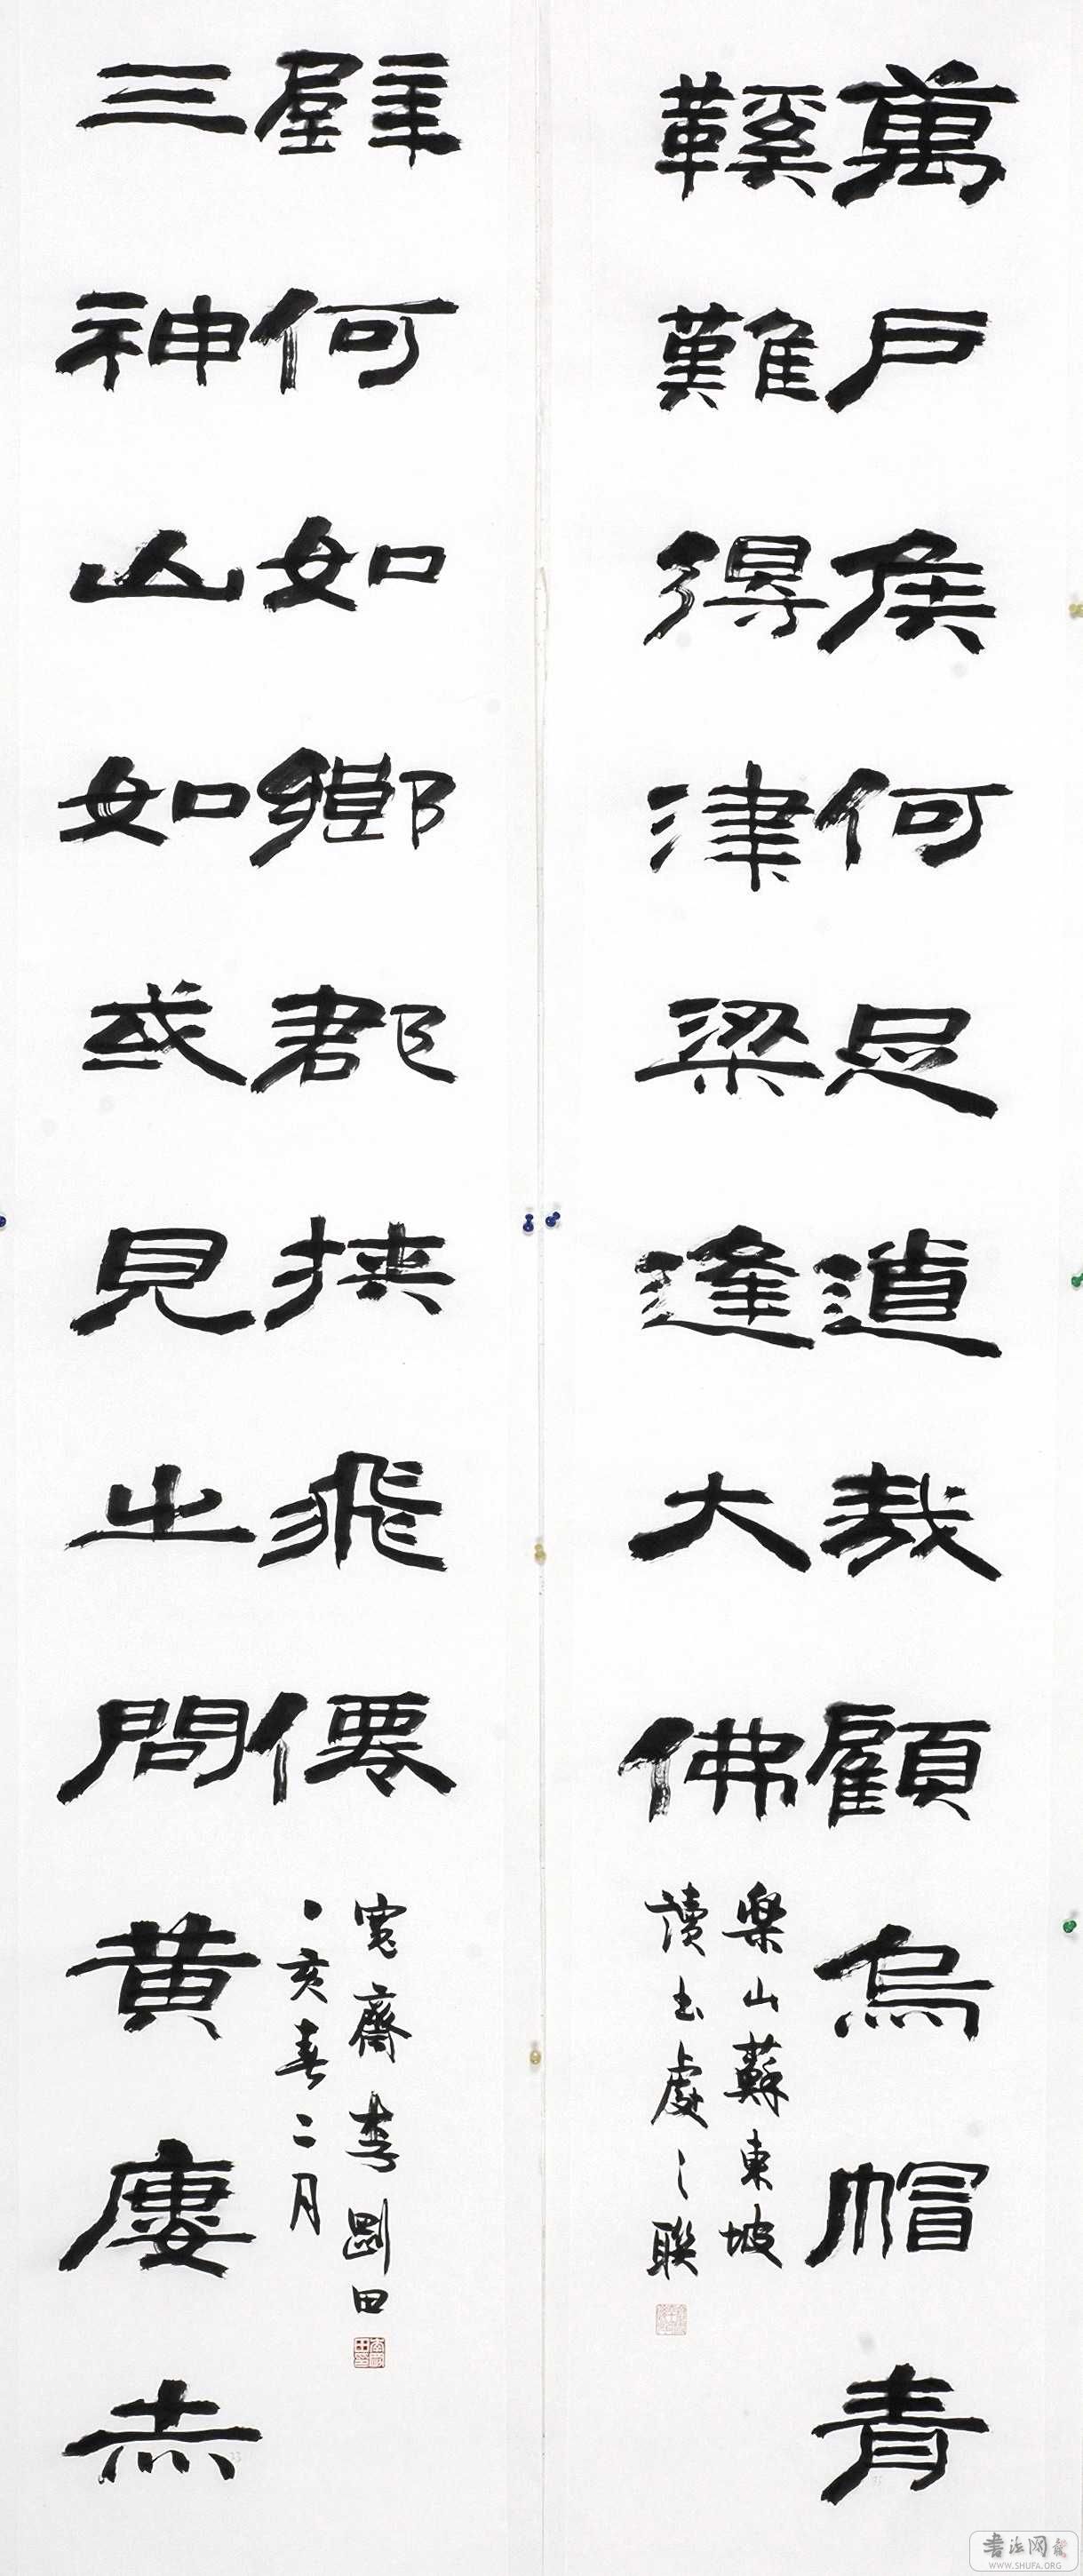 萬戶侯何足道哉顧烏帽青
鞵難得津梁逢大佛
樂山蘇東坡
讀書處之聯
三神山如或見之問黃廔赤
壁何如鄉郡挾飛僊
寬齋李剛田
丁亥春二月
書法网
WWW.SHUFA.ORG